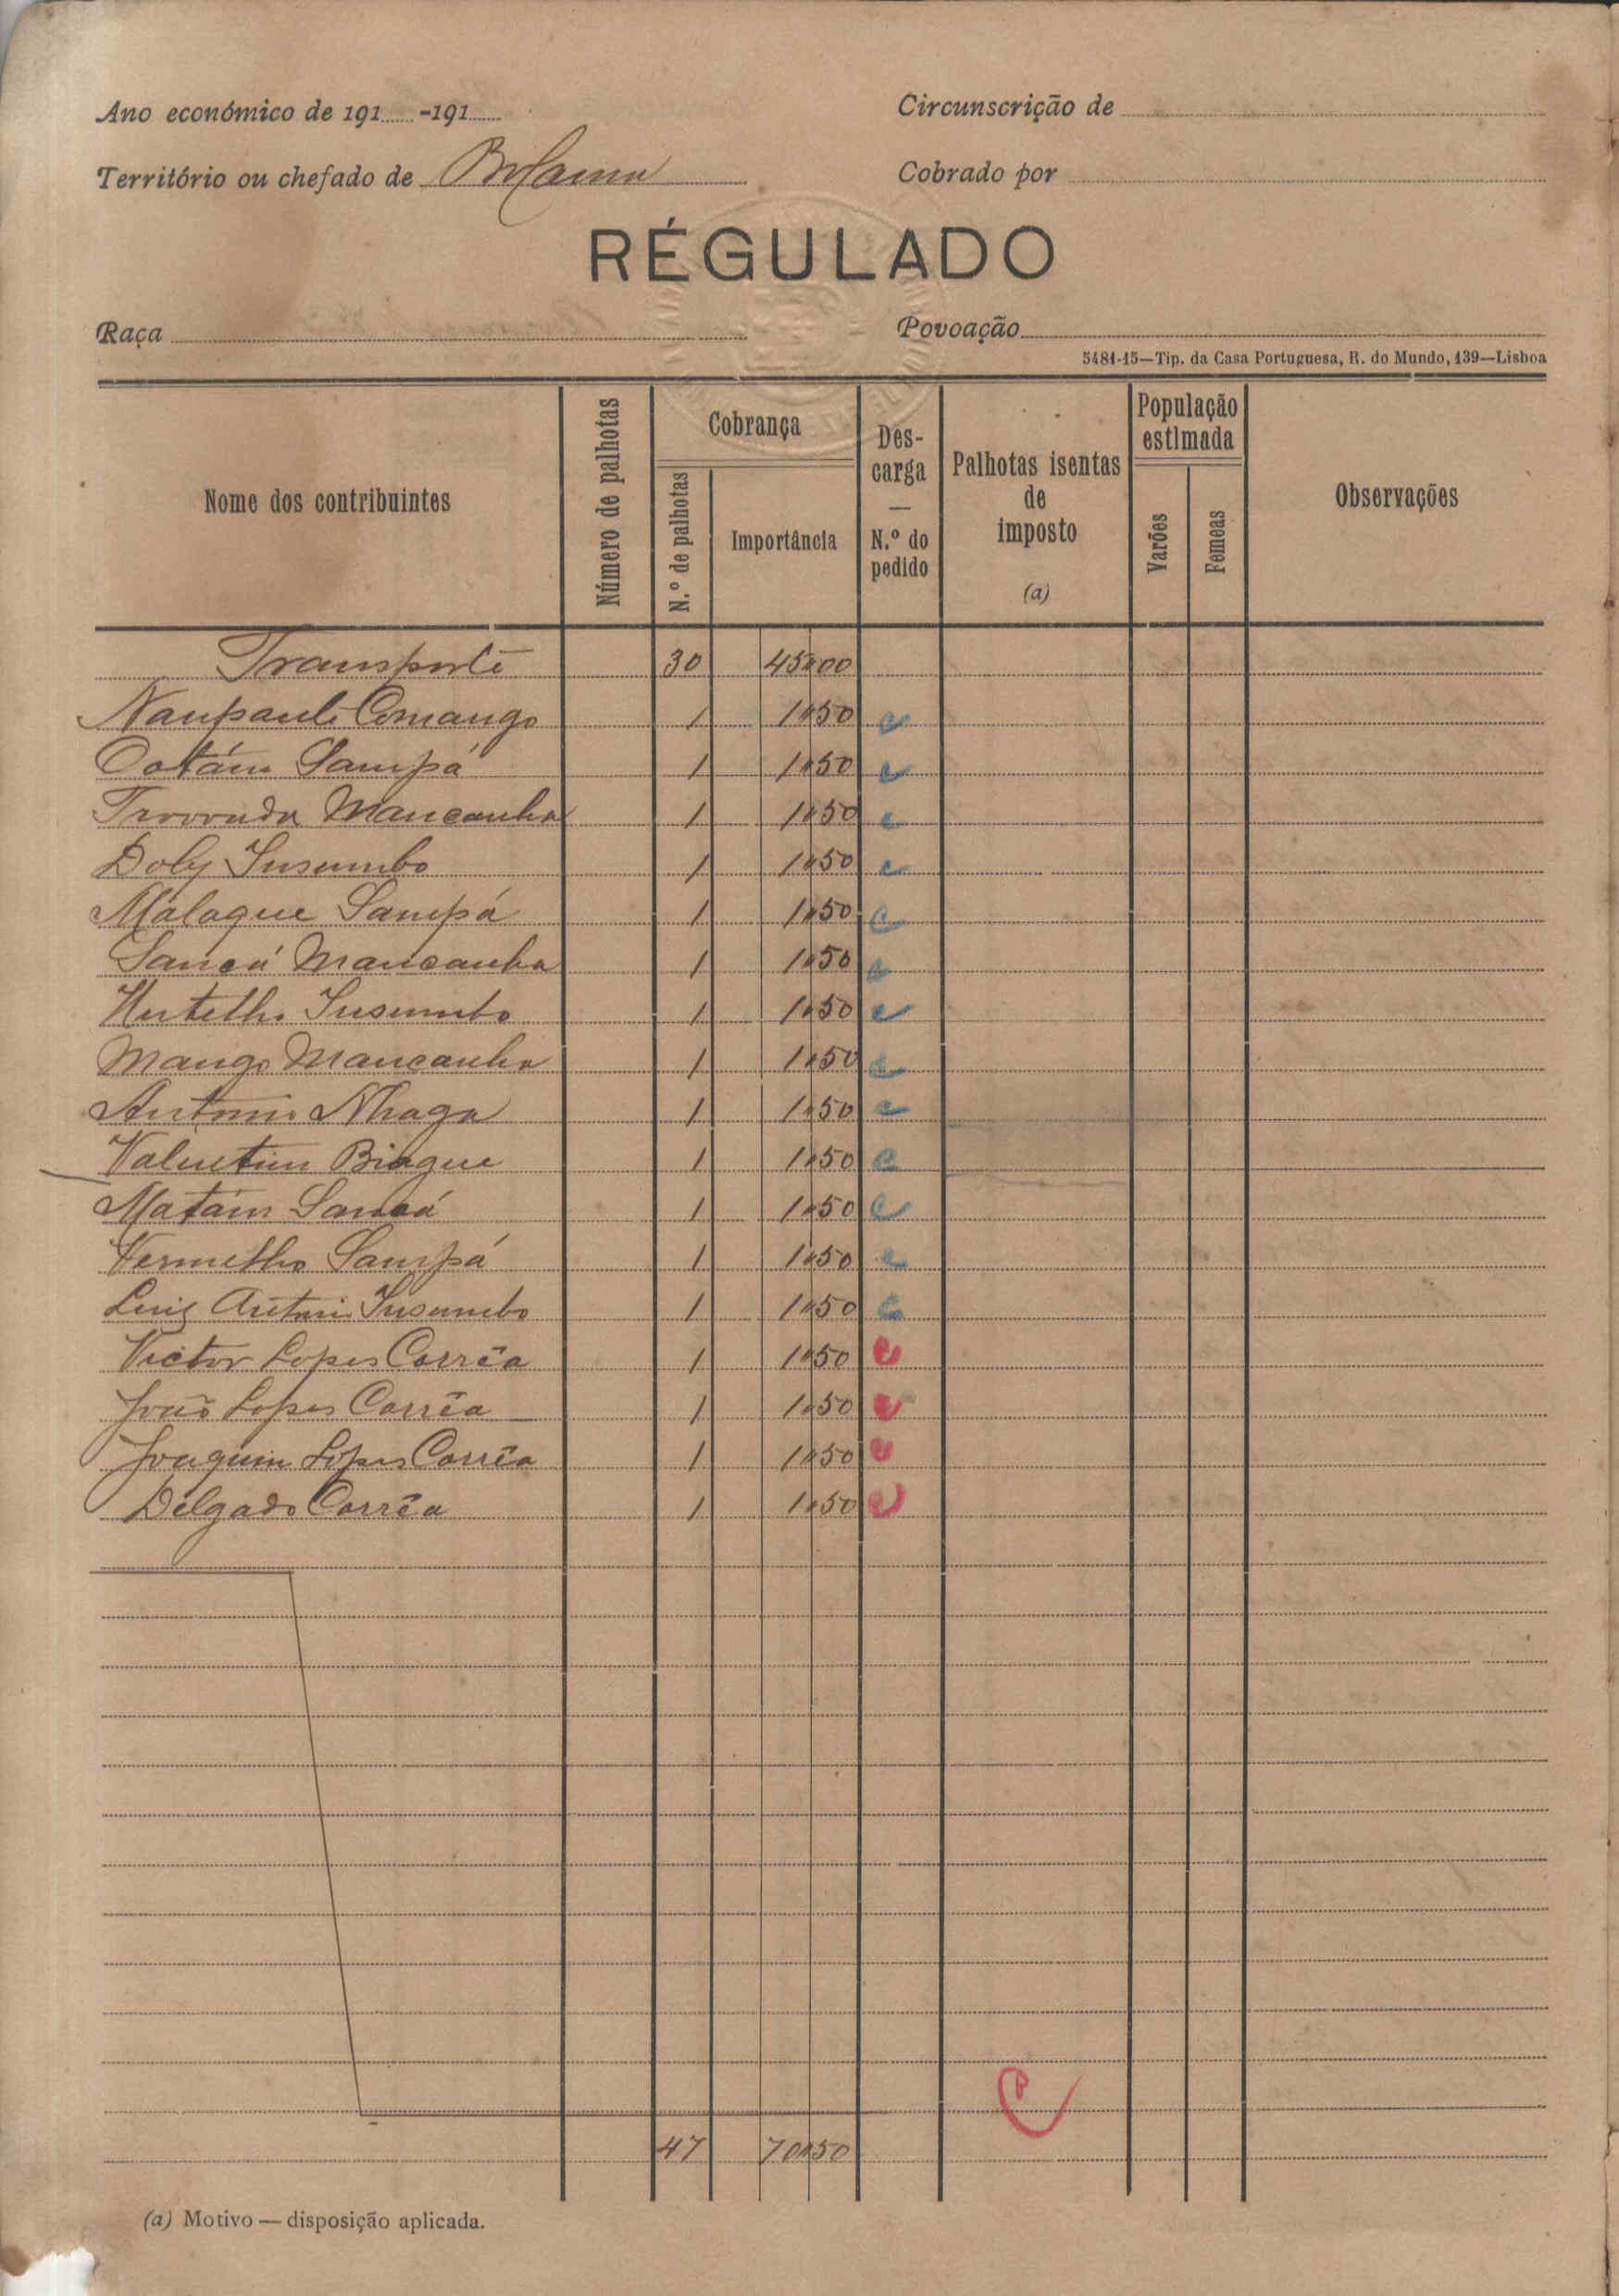 Ano económico de 191......-191......
Circunscrição de
Território ou chefado de Bolama
Cobrado por
RÉGULADO
Raça
Povoação
5481-15—Tip. da Casa Portuguesa, R. do Mundo, 139—Lisboa
Nome dos contribuintes
Número de palhotas
Cobrança
N.º de palhotas
Importância
Des-
carga
—
N.º do
pedido
Palhotas isentas
de
imposto
(a)
População
estimada
Varões
Femeas
Observações
Transporte 30 45$00
Comango 1 1$50 c
Sampá 1 1$50 c
Mancanha 1 1$50 c
Doly Susumbo 1 1$50 c
Malaque Sampá 1 1$50 c
Sancá Mancanha 1 1$50 c
Susumbo 1 1$50 c
Mango Mancanha 1 1$50 c
Antonio Nhaga 1 1$50 c
Valentim Biague 1 1$50 c
Matám Sancá 1 1$50 c
Vermelho Sampá 1 1$50 c
Luiz Antonio Susumbo 1 1$50 c
Victor Lopes Corrêa 1 1$50 c
João Lopes Corrêa 1 1$50 c
Joaquim Lopes Corrêa 1 1$50 c
Delgado Corrêa 1 1$50 c
47 70$50
(a) Motivo — disposição aplicada.